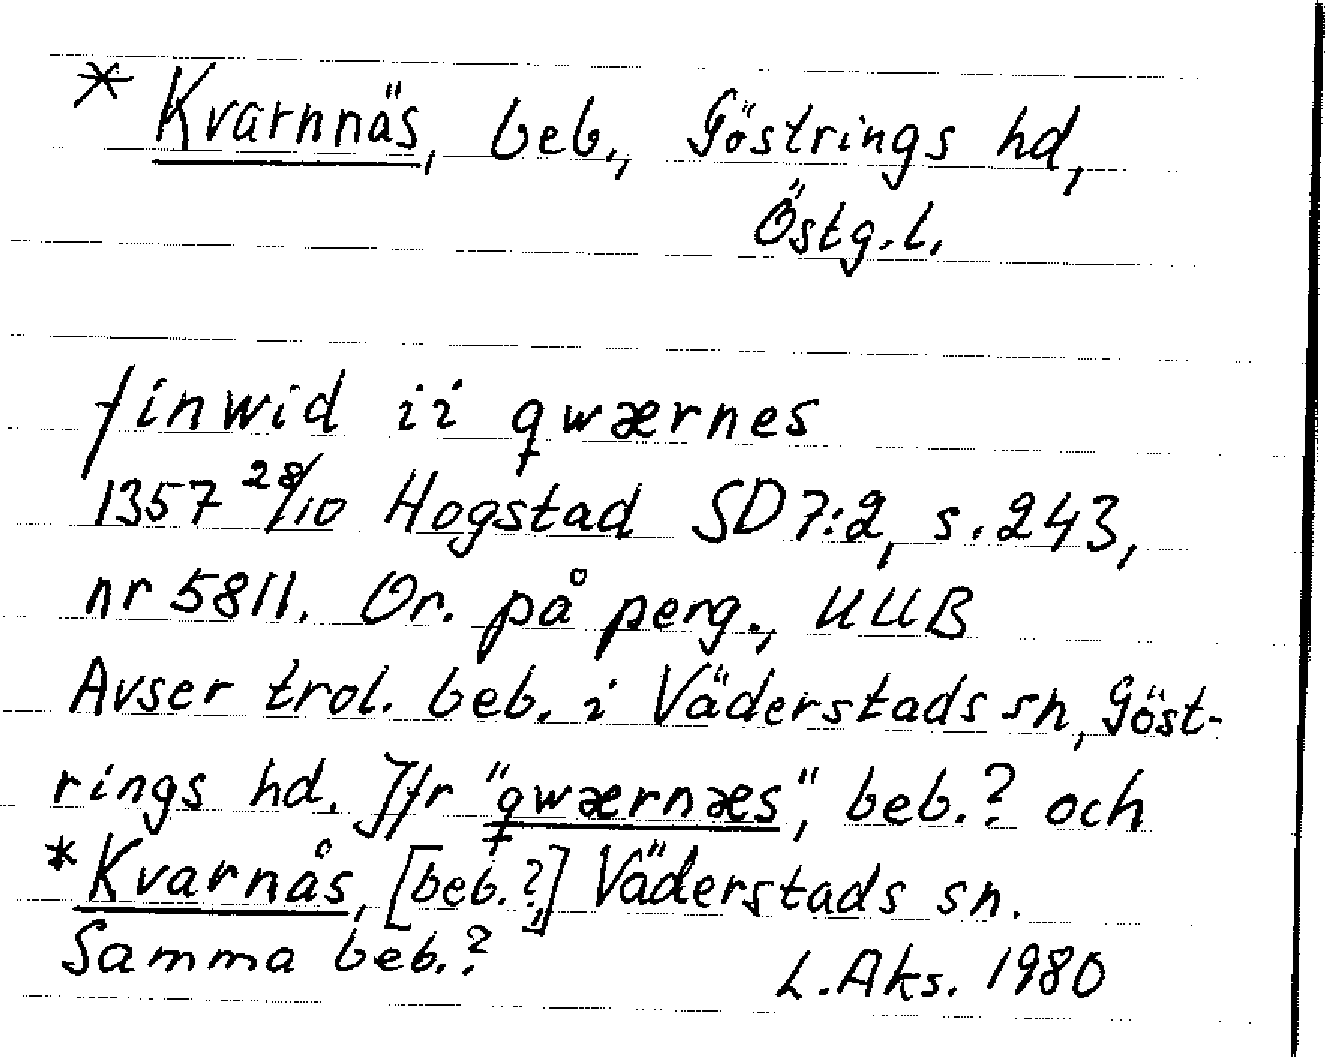 * Kvarnnäs, beb., Göstrings hd,
Östg.l.
finwid ii qwærnes
1357 28/10 Hogstad SD 7:2, s. 243,
nr 5811. Or. på perg., UUB
Avser trol. beb. i Väderstads sn, Göst-
rings hd. Jfr "qwærnæs", beb.? och
*Kvarnås, [beb.?,] Väderstads sn.
Samma beb.?
L.Aks. 1980